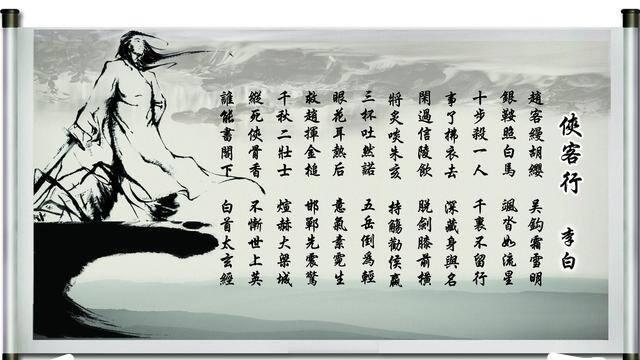 俠客行 李白
趙客縵胡纓 吳鈎霜雪明
銀鞍照白馬 颯沓如流星
十步殺一人 千裏不留行
事了拂衣去 深藏身與名
閑過信陵飲 脫劍膝前橫
將炙啖朱亥 持觴勸侯嬴
三杯吐然諾 五岳倒為輕
眼花耳熱后 意氣素霓生
救趙揮金槌 邯鄲先震驚
千秋二壯士 煊赫大梁城
縱死俠骨香 不慚世上英
誰能書閣下 白首太玄經